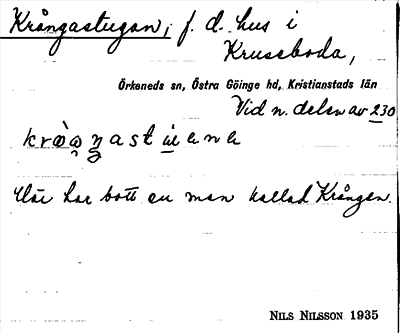 Krångastugan, f. d. hus i
Krussboda,
Örkeneds sn, Östra Göinge hd, Kristianstads län
Vid n. delen av 230
Där har bott en man kallad Krången.
NILS NILSSON 1935